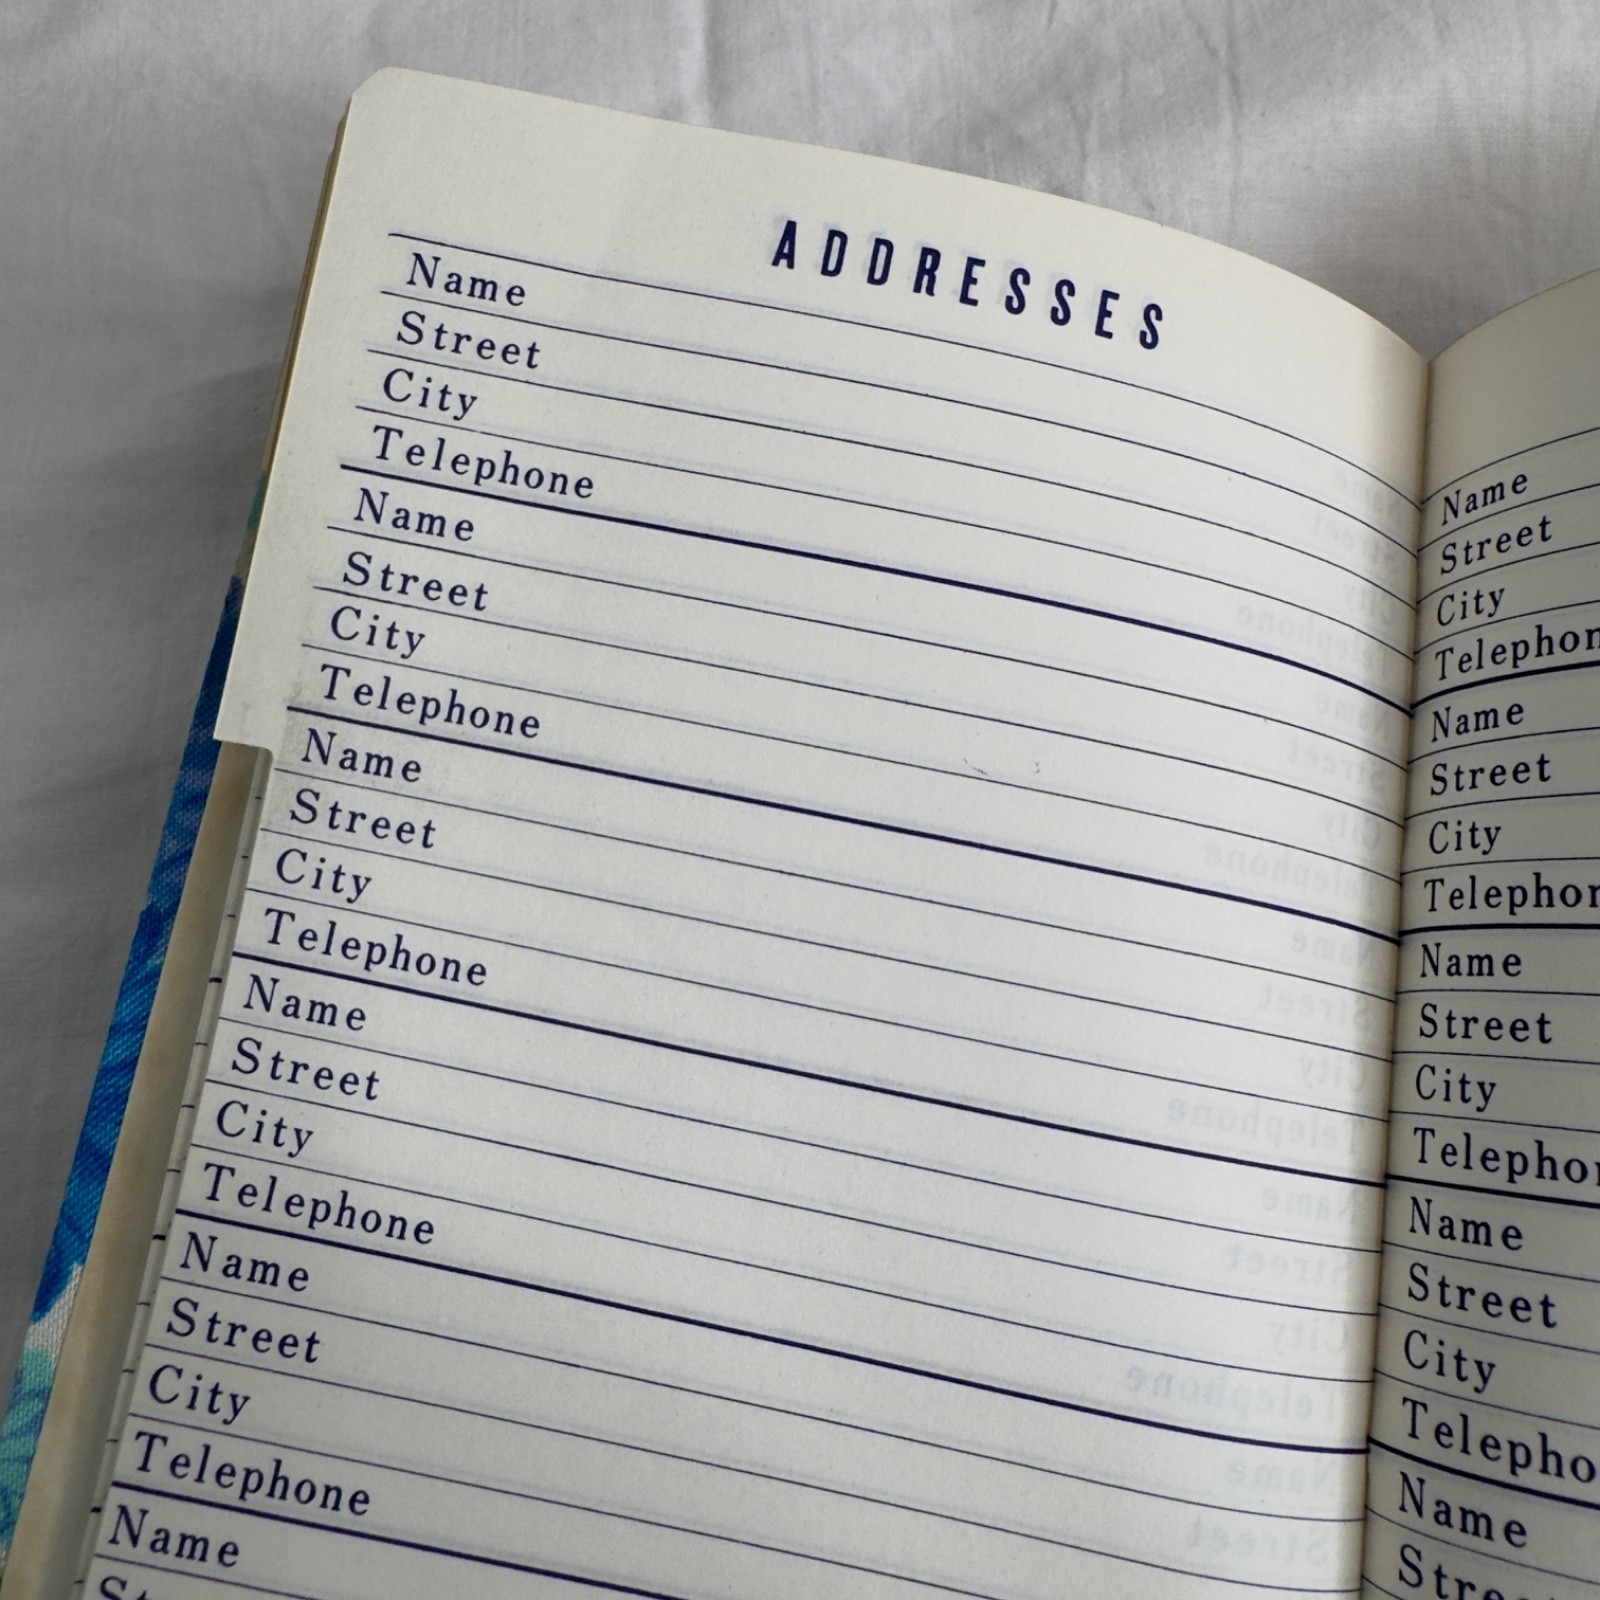 ADDRESSES
Name
Street
City
Telephone
Name
Street
City
Telephone
Name
Street
City
Telephone
Name
Street
City
Telephone
Name
Street
City
Telephone
Name
Name
Street
City
Name
Street
City
Name
Street
City
Name
Street
City
Name